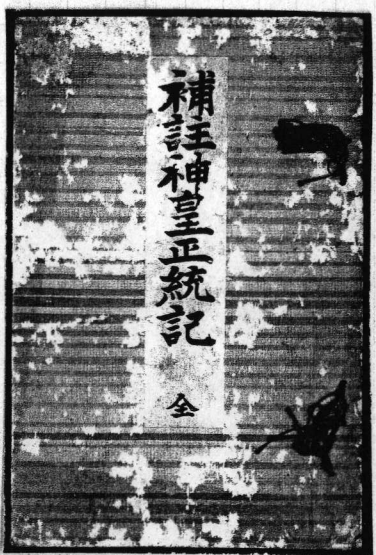 補註神皇正統記 全